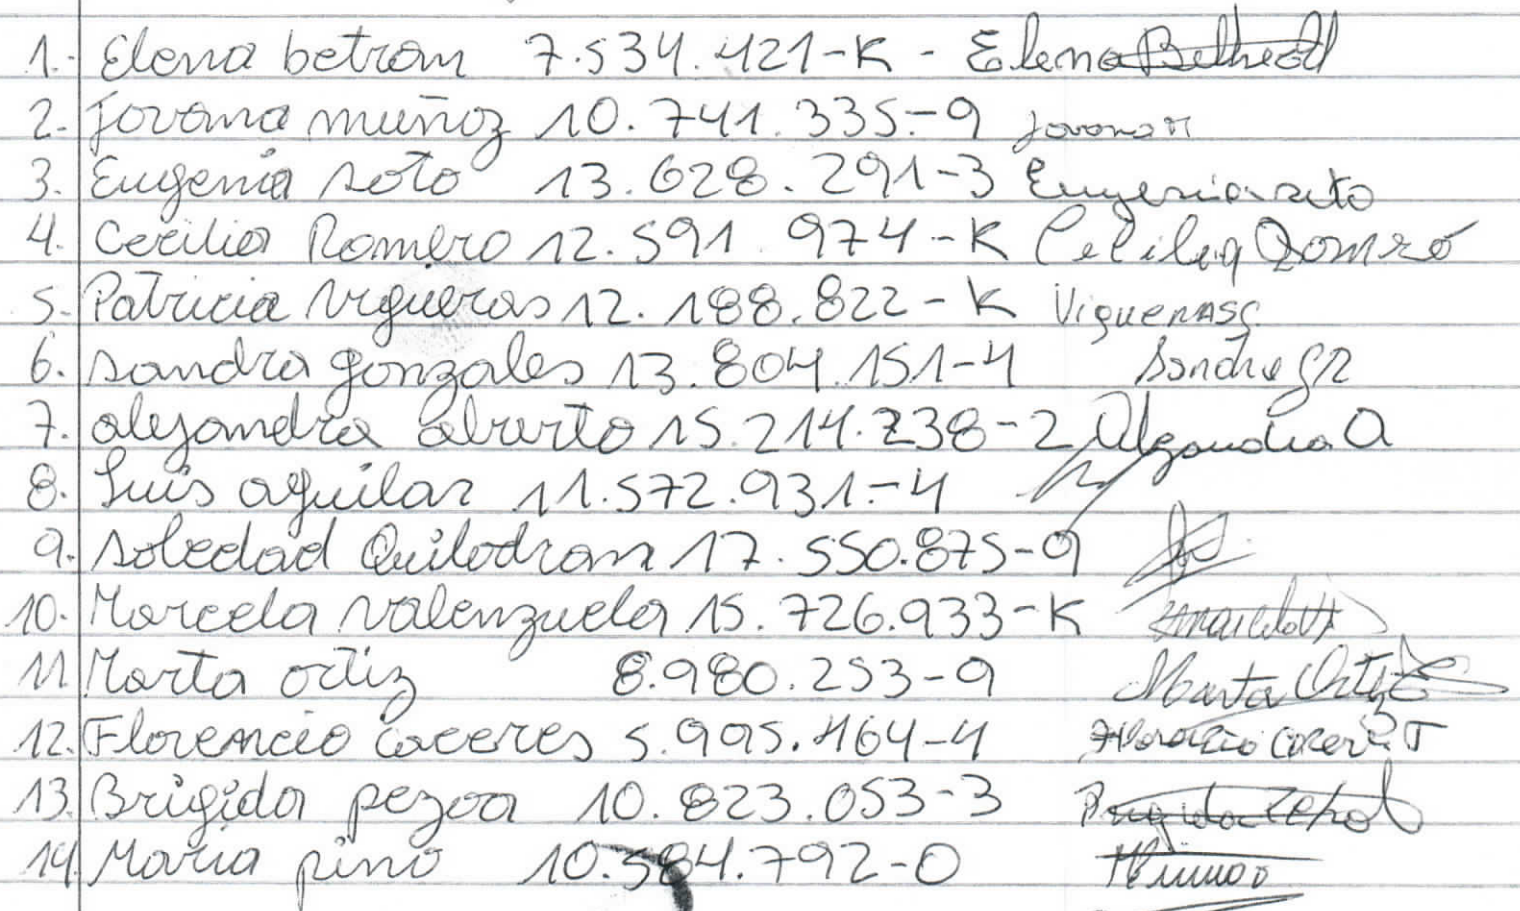 1.- Elena betran 7.534.421-K - Elena
2.- Jovana muñoz 10.741.335-9 Jovana M
3. Eugenia soto 13.628.291-3 Eugenia soto
4. Cecilia Romero 12.591.974-K Cecilia Romero
5.- Patricia Vigueras 12.188.822-K
6. sandra gonzales 13.804.151-4 Sandra
7. alejandra aburto 15.214.238-2 Alejandra A
8. Luis aguilar 11.572.931-4
9. soledad Quilodran 17.550.875-9
10. Marcela valenzuela 15.726.933-K
11 Marta ortiz 8.980.253-9 Marta Ortiz
12. Florencio caceres 5.995.464-4
13. Brigida pezoa 10.823.053-3
14 Maria pino 10.584.792-0